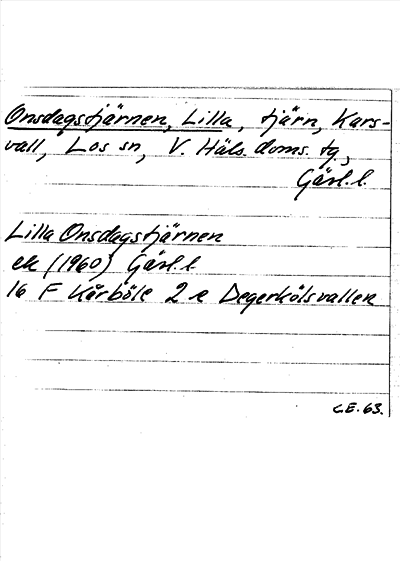 Onsdagstjärnen, Lilla, tjärn, Kars-
vall, Los sn, V. Häls. doms. tg.,
Gävl. l.
Lilla Onsdagstjärnen
ek (1960) Gävl. l
16 F Kårböle 2 e Degerkölsvallen
C.E. 63.